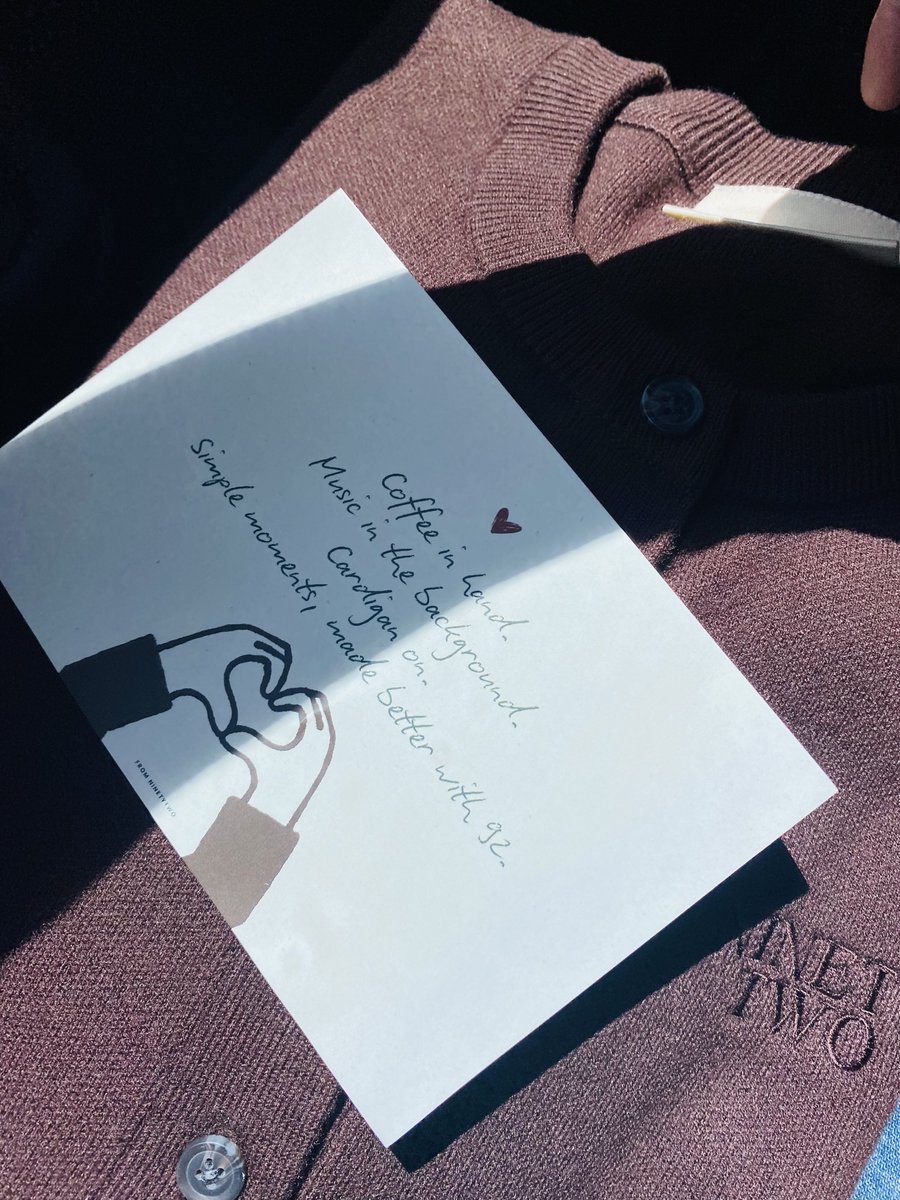 Coffee in hand.
Music in the background.
Cardigan on.
Simple moments, made better with 92.
FROM NINETYTWO
NINET
TWO